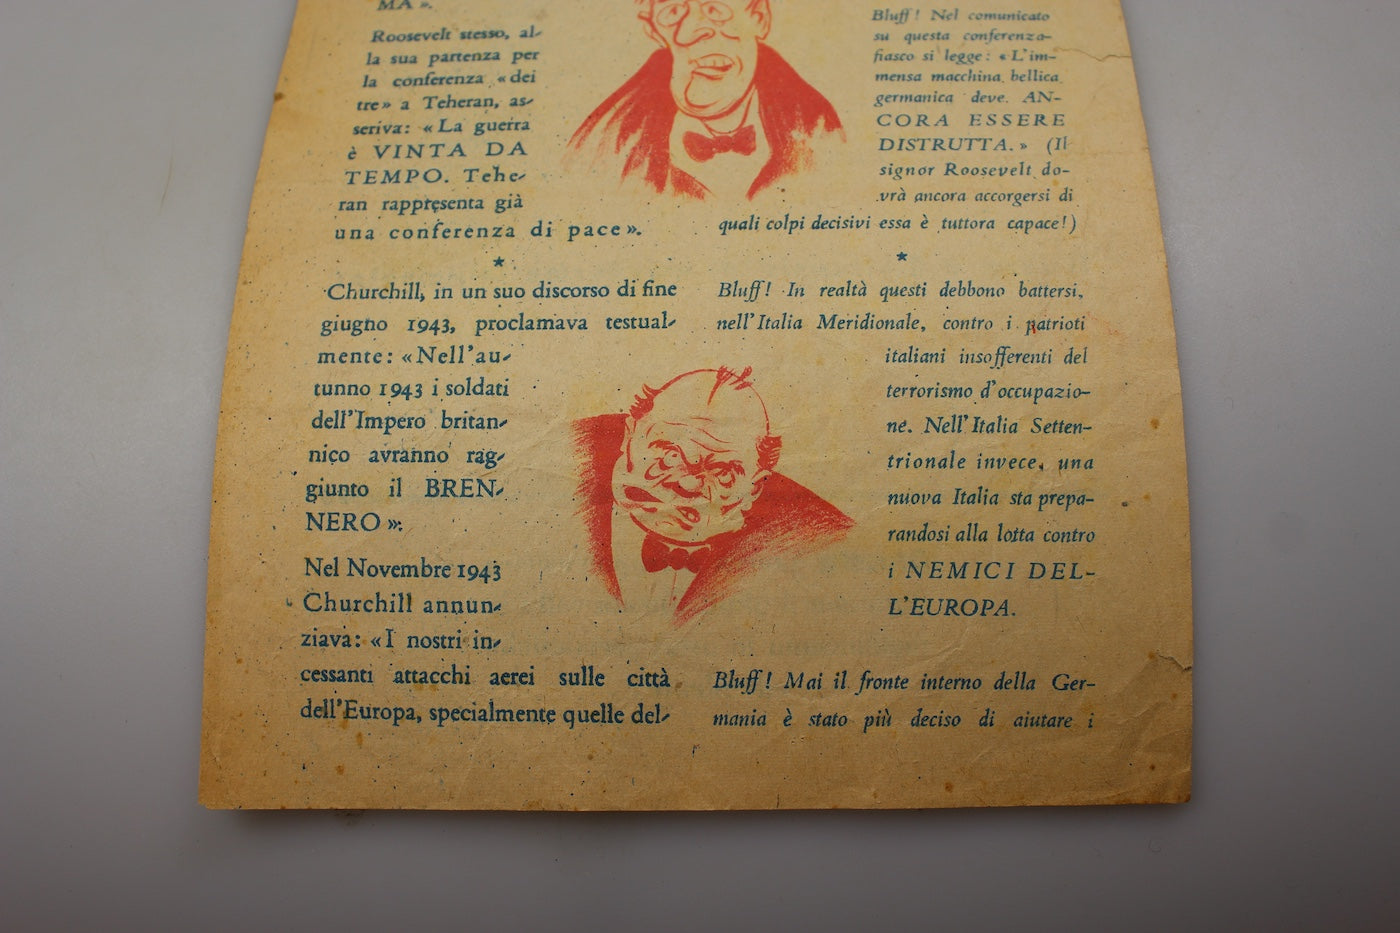 MA».
Roosevelt stesso, al-
la sua partenza per
la conferenza «dei
tre» a Teheran, as-
seriva: «La guerra
è VINTA DA
TEMPO. Tehe-
ran rappresenta già
una conferenza di pace».
Bluff! Nel comunicato
su questa conferenza-
fiasco si legge: «L'im-
mensa macchina bellica
germanica deve AN-
CORA ESSERE
DISTRUTTA.» (Il
signor Roosevelt do-
vrà ancora accorgersi di
quali colpi decisivi essa è tuttora capace!)
★
★
Churchill, in un suo discorso di fine
giugno 1943, proclamava testual-
mente: «Nell'au-
tunno 1943 i soldati
dell'Impero britan-
nico avranno rag-
giunto il BREN-
NERO».
Bluff! In realtà questi debbono battersi,
nell'Italia Meridionale, contro i patrioti
italiani insofferenti del
terrorismo d'occupazio-
ne. Nell'Italia Setten-
trionale invece, una
nuova Italia sta prepa-
randosi alla lotta contro
i NEMICI DEL-
L'EUROPA.
Nel Novembre 1943
Churchill annun-
ziava: «I nostri in-
cessanti attacchi aerei sulle città
dell'Europa, specialmente quelle del-
Bluff! Mai il fronte interno della Ger-
mania è stato più deciso di aiutare i